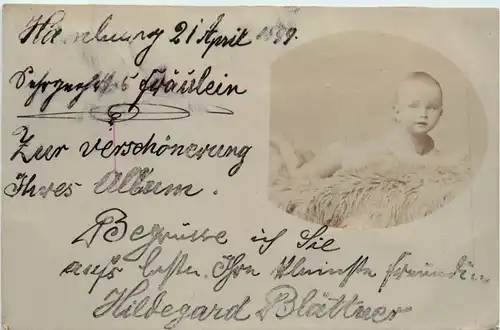 Hamburg 21 April 1899.
Sehrgeehrtes Fräulein
Zur Verschönerung
Ihres Album.
Begrüsse ich Sie
aufs beste. Ihre kleinste Freundin
Hildegard Blättner